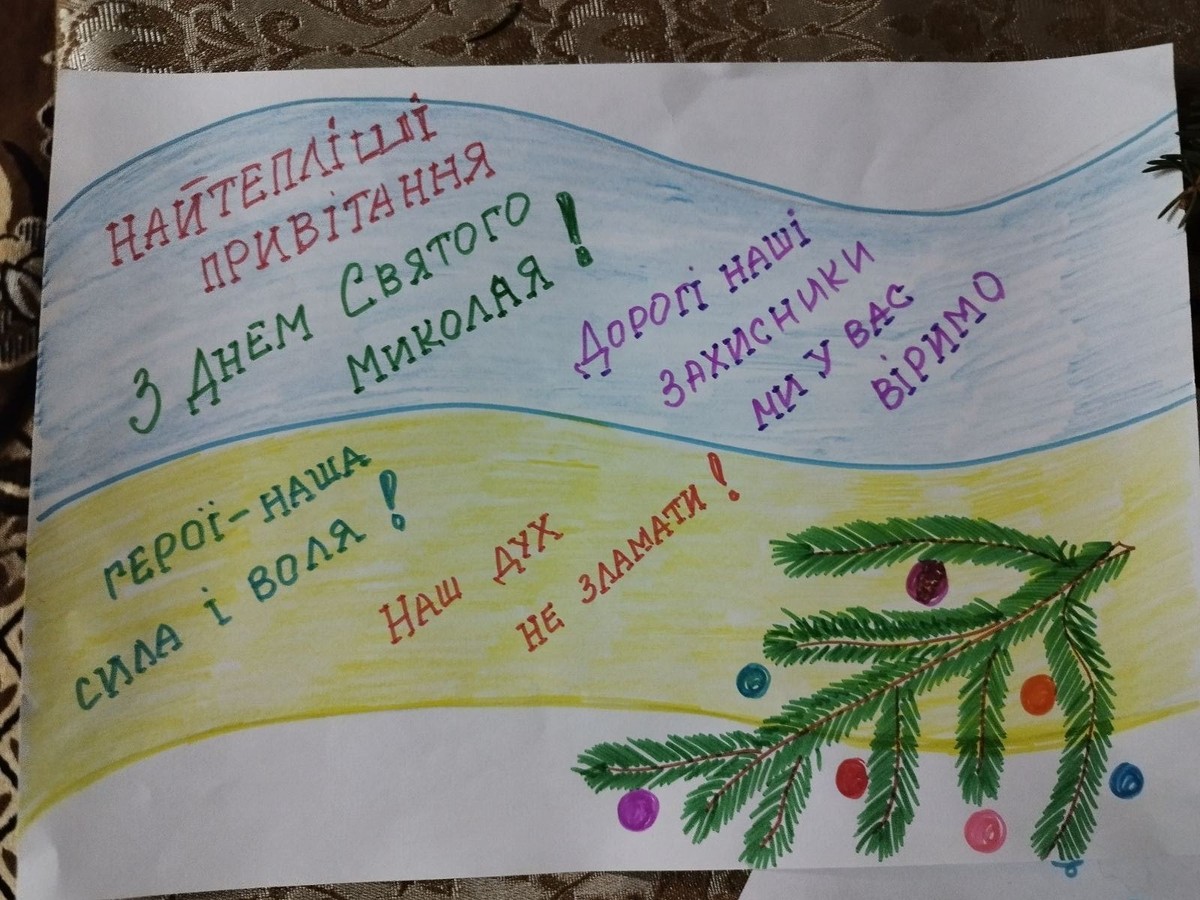 НАЙТЕПЛІШІ
ПРИВІТАННЯ
З ДНЕМ СВЯТОГО
МИКОЛАЯ!
ДОРОГІ НАШІ
ЗАХИСНИКИ
МИ У ВАС
ВІРИМО
ГЕРОЇ-НАША
СИЛА І ВОЛЯ!
НАШ ДУХ
НЕ ЗЛАМАТИ!